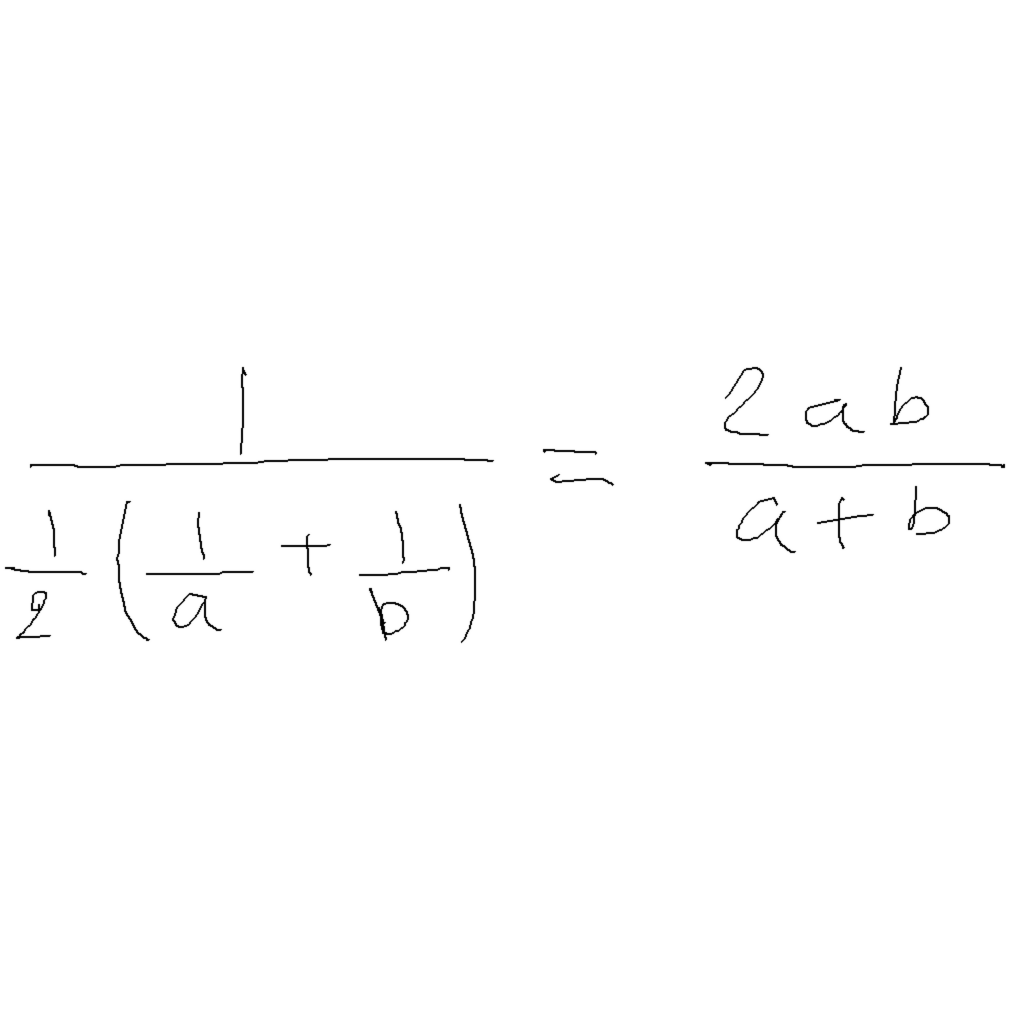 \frac{1}{\frac{1}{2}\left(\frac{1}{a}+\frac{1}{b}\right)} = \frac{2ab}{a+b}